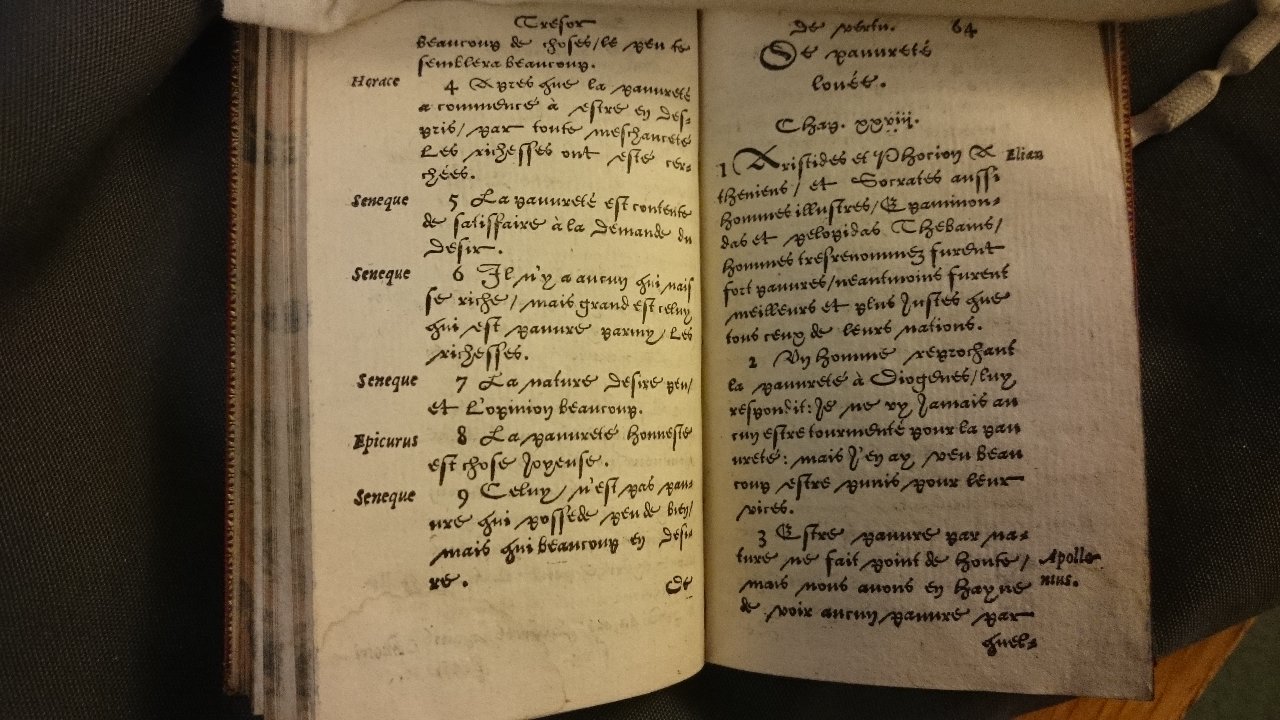 Tresor
beaucoup de choses/le peu te
semblera beaucoup.
Horace
4 Apres que la pauureté
a commencé à estre en des-
pris/ par toute meschanceté
Les richesses ont esté cer-
chées.
Seneque
5 La pauureté est contente
de satisffaire à la demande du
desir.
Seneque
6 Il n'y a aucun qui nais
se riche/ mais grand est celuy
qui est pauure parmy/ Les
richesses.
Seneque
7 La nature desire peu/
et L'opinion beaucoup.
Epicurus
8 La pauureté honneste
est chose Joyeuse.
Seneque
9 Celuy/ n'est pas pau-
ure qui possede peu de bien/
mais qui beaucoup en desi-
re.
De
de vertu. 64
De pauureté
louée.
Chap. xxviii.
1 Aristides et Phocion A
Elian
theniens/ et Socrates aussi
hommes illustres/ Epaminon-
das et pelopidas Thebains/
hommes tresrenommez furent
fort pauures/neantmoins furent
meilleurs et plus Justes que
tous ceux de leurs nations.
2 Vn homme reprochant
la pauureté à Diogenes/luy
respondit: Je ne vy Jamais au
cun estre tourmenté pour la pau
ureté: mais J'en ay veu beau
coup estre punis pour leur
vices.
3 Estre pauure par na-
ture ne fait point de honte/
Apollo
nius.
mais nous auons en hayne
de voir aucun pauure par
quel-